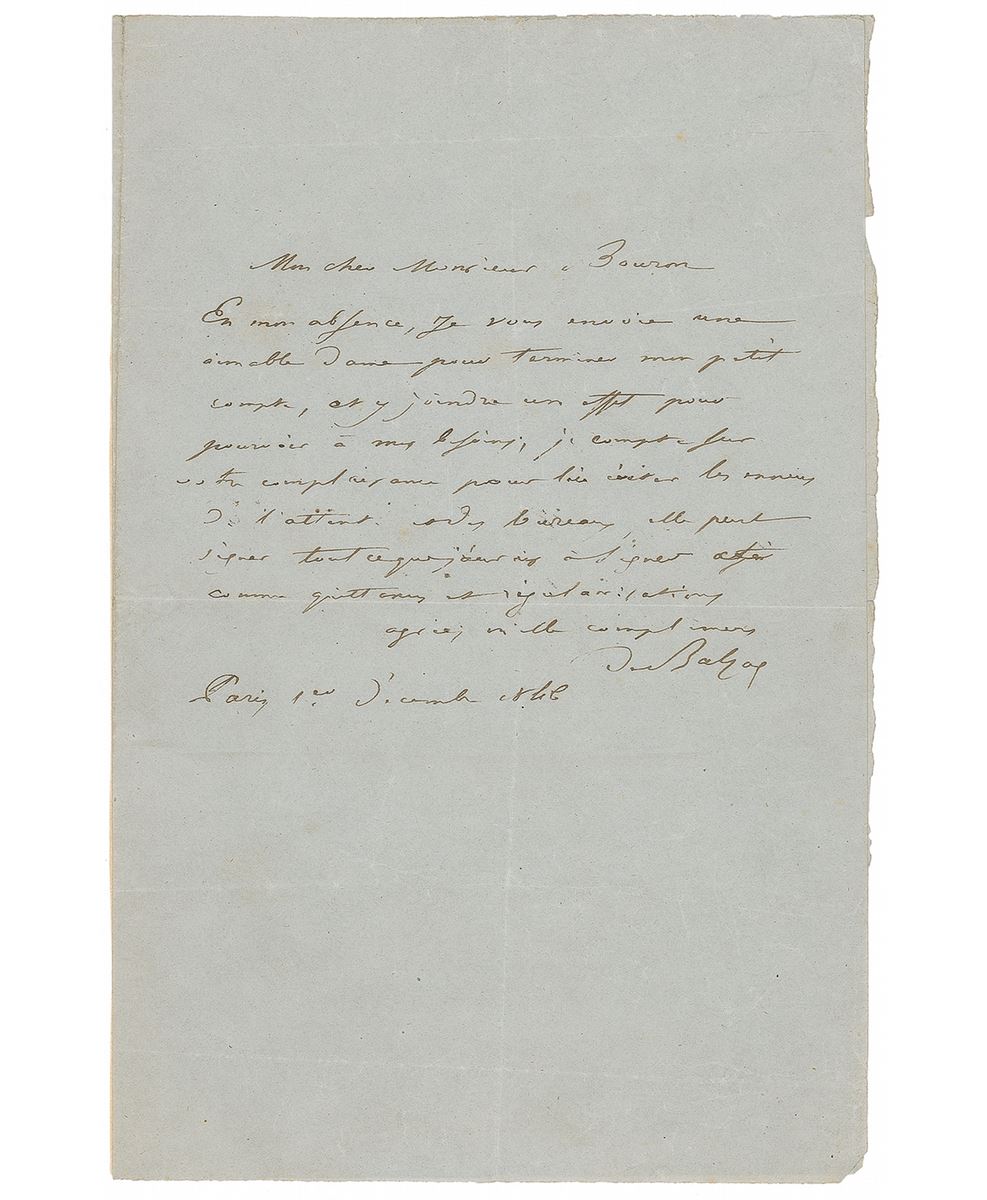 Mon cher Monsieur
En mon absence, je vous envoie une
aimable Dame pour terminer mon petit
compte, et y joindre un effet pour
pourvoir à mes besoins; je compte sur
votre complaisance pour lui éviter les ennuis
de l'attente et des bureaux, elle peut
signer tout ce que j'aurais à signer
comme quittances et régularisations
agréez mille compliments
De Balzac
Paris 1er décembre 1846